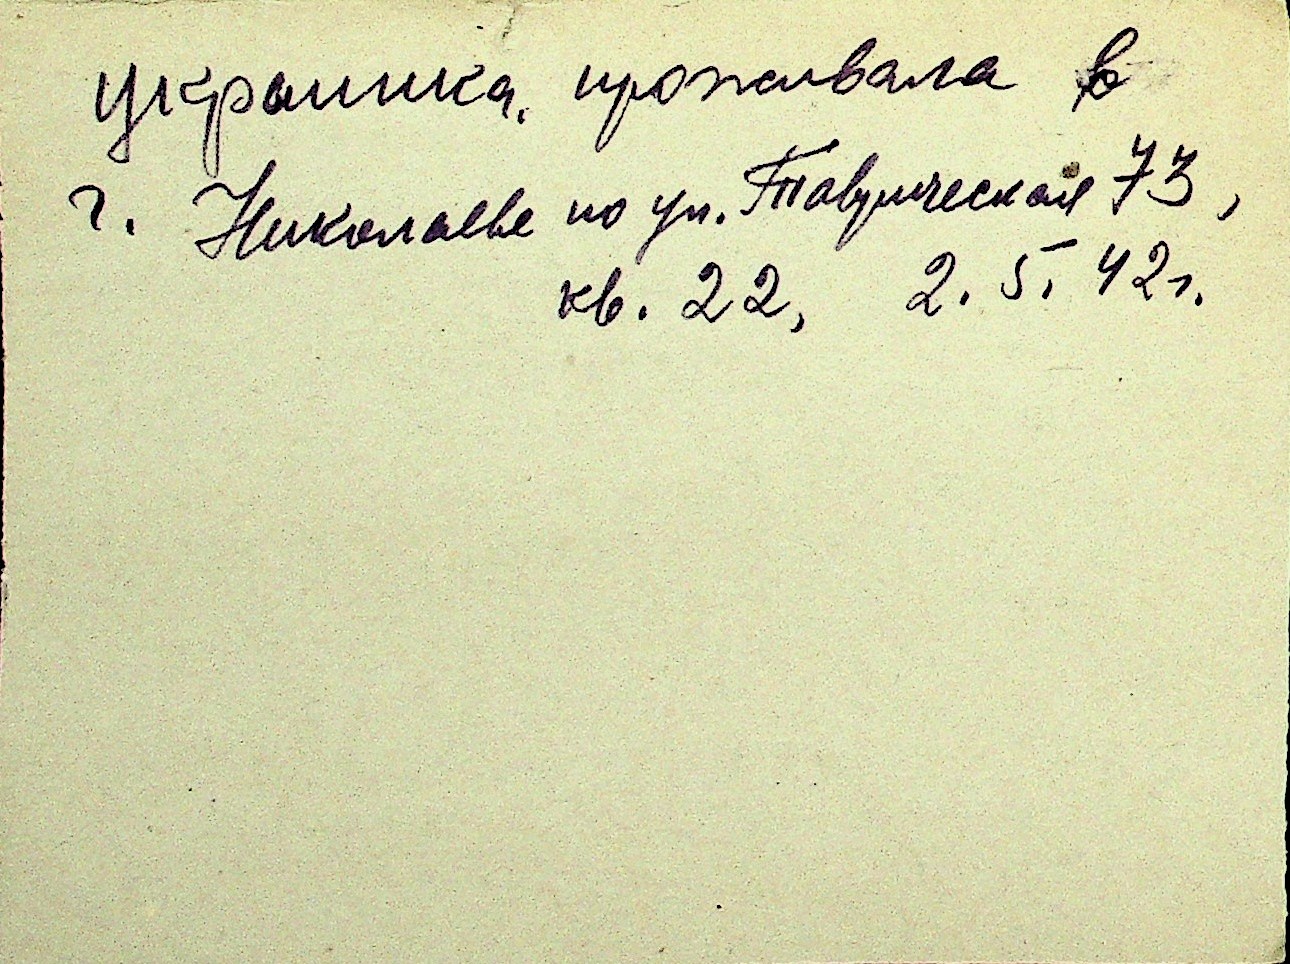 украинка, проживала в
г. Николаеве по ул. Таврическая 73,
кв. 22, 2.5.42г.